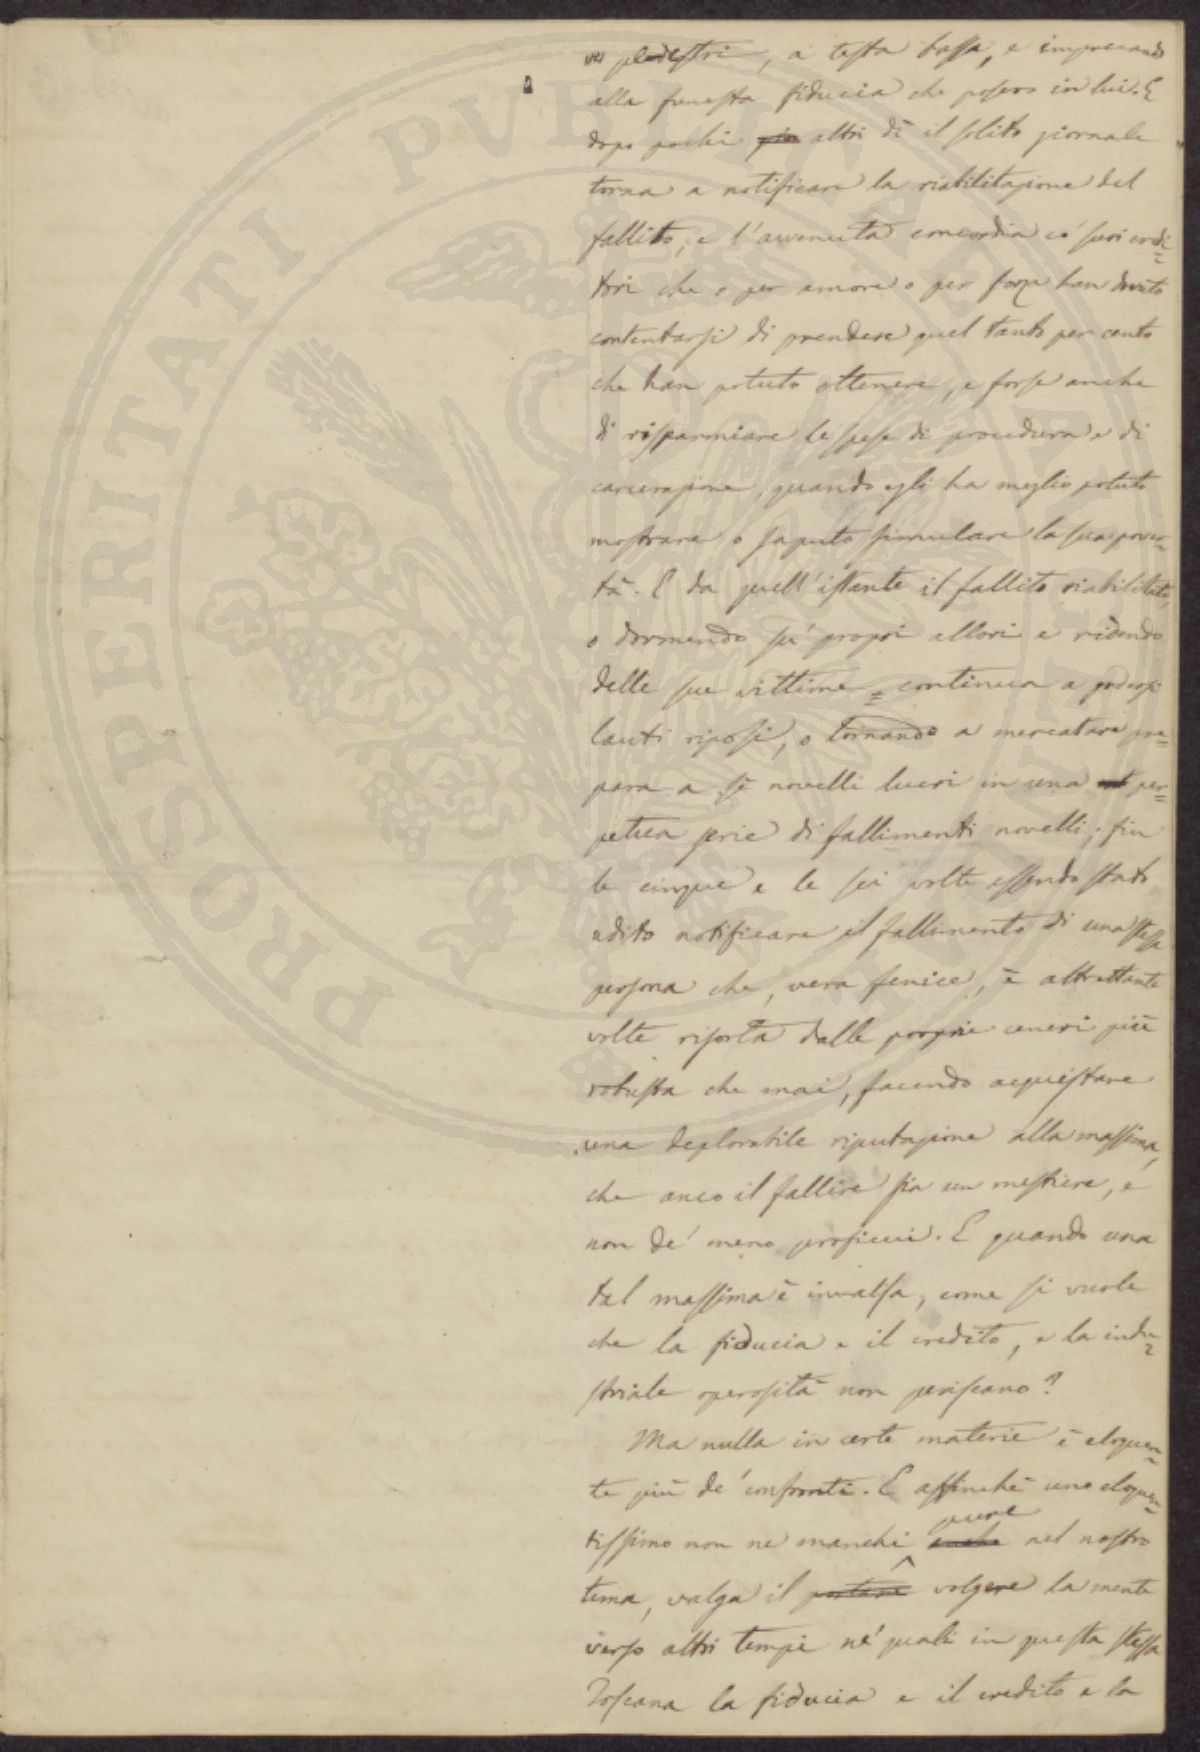 pedestri, a testa bassa, e imprecando
alla funesta fiducia che posero in lui. E
dopo pochi altri dì il solito giornale
torna a notificare la riabilitazione del
fallito, e l'avvenuta concordia co' suoi credi=
tori che o per amore o per forza han dovuto
contentarsi di prendere quel tanto per cento
che han potuto ottenere, e forse anche
di risparmiare le spese di procedura e di
carcerazione, quando egli ha meglio potuto
mostrare o saputo simulare la sua pover=
tà. E da quell'istante il fallito riabilitato,
o dormendo su' propri allori e ridendo
delle sue vittime = continua a godersi
lauti riposi, o tornando a mercatare pre=
para a sè novelli lucri in una per=
petua serie di fallimenti novelli; fin
le cinque e le sei volte essendo stato
udito notificare il fallimento di una stessa
persona che, vera fenice, è altrettante
volte risorta dalle proprie ceneri più
robusta che mai, facendo acquistare
una deplorabile riputazione alla massima,
che anco il fallire sia un mestiere, e
non de' meno proficui. E quando una
tal massima è invalsa, come si vuole
che la fiducia e il credito, e la indu=
striale operosità non periscano?
Ma nulla in certe materie è eloquen=
te più de' confronti. E affinchè uno eloquen=
tissimo non ne manchi anche pure nel nostro
tema, valga il portare volgere la mente
verso altri tempi ne' quali in questa stessa
Toscana la fiducia e il credito e la
PROSPERITATI PUBLICAE AUGENDAE